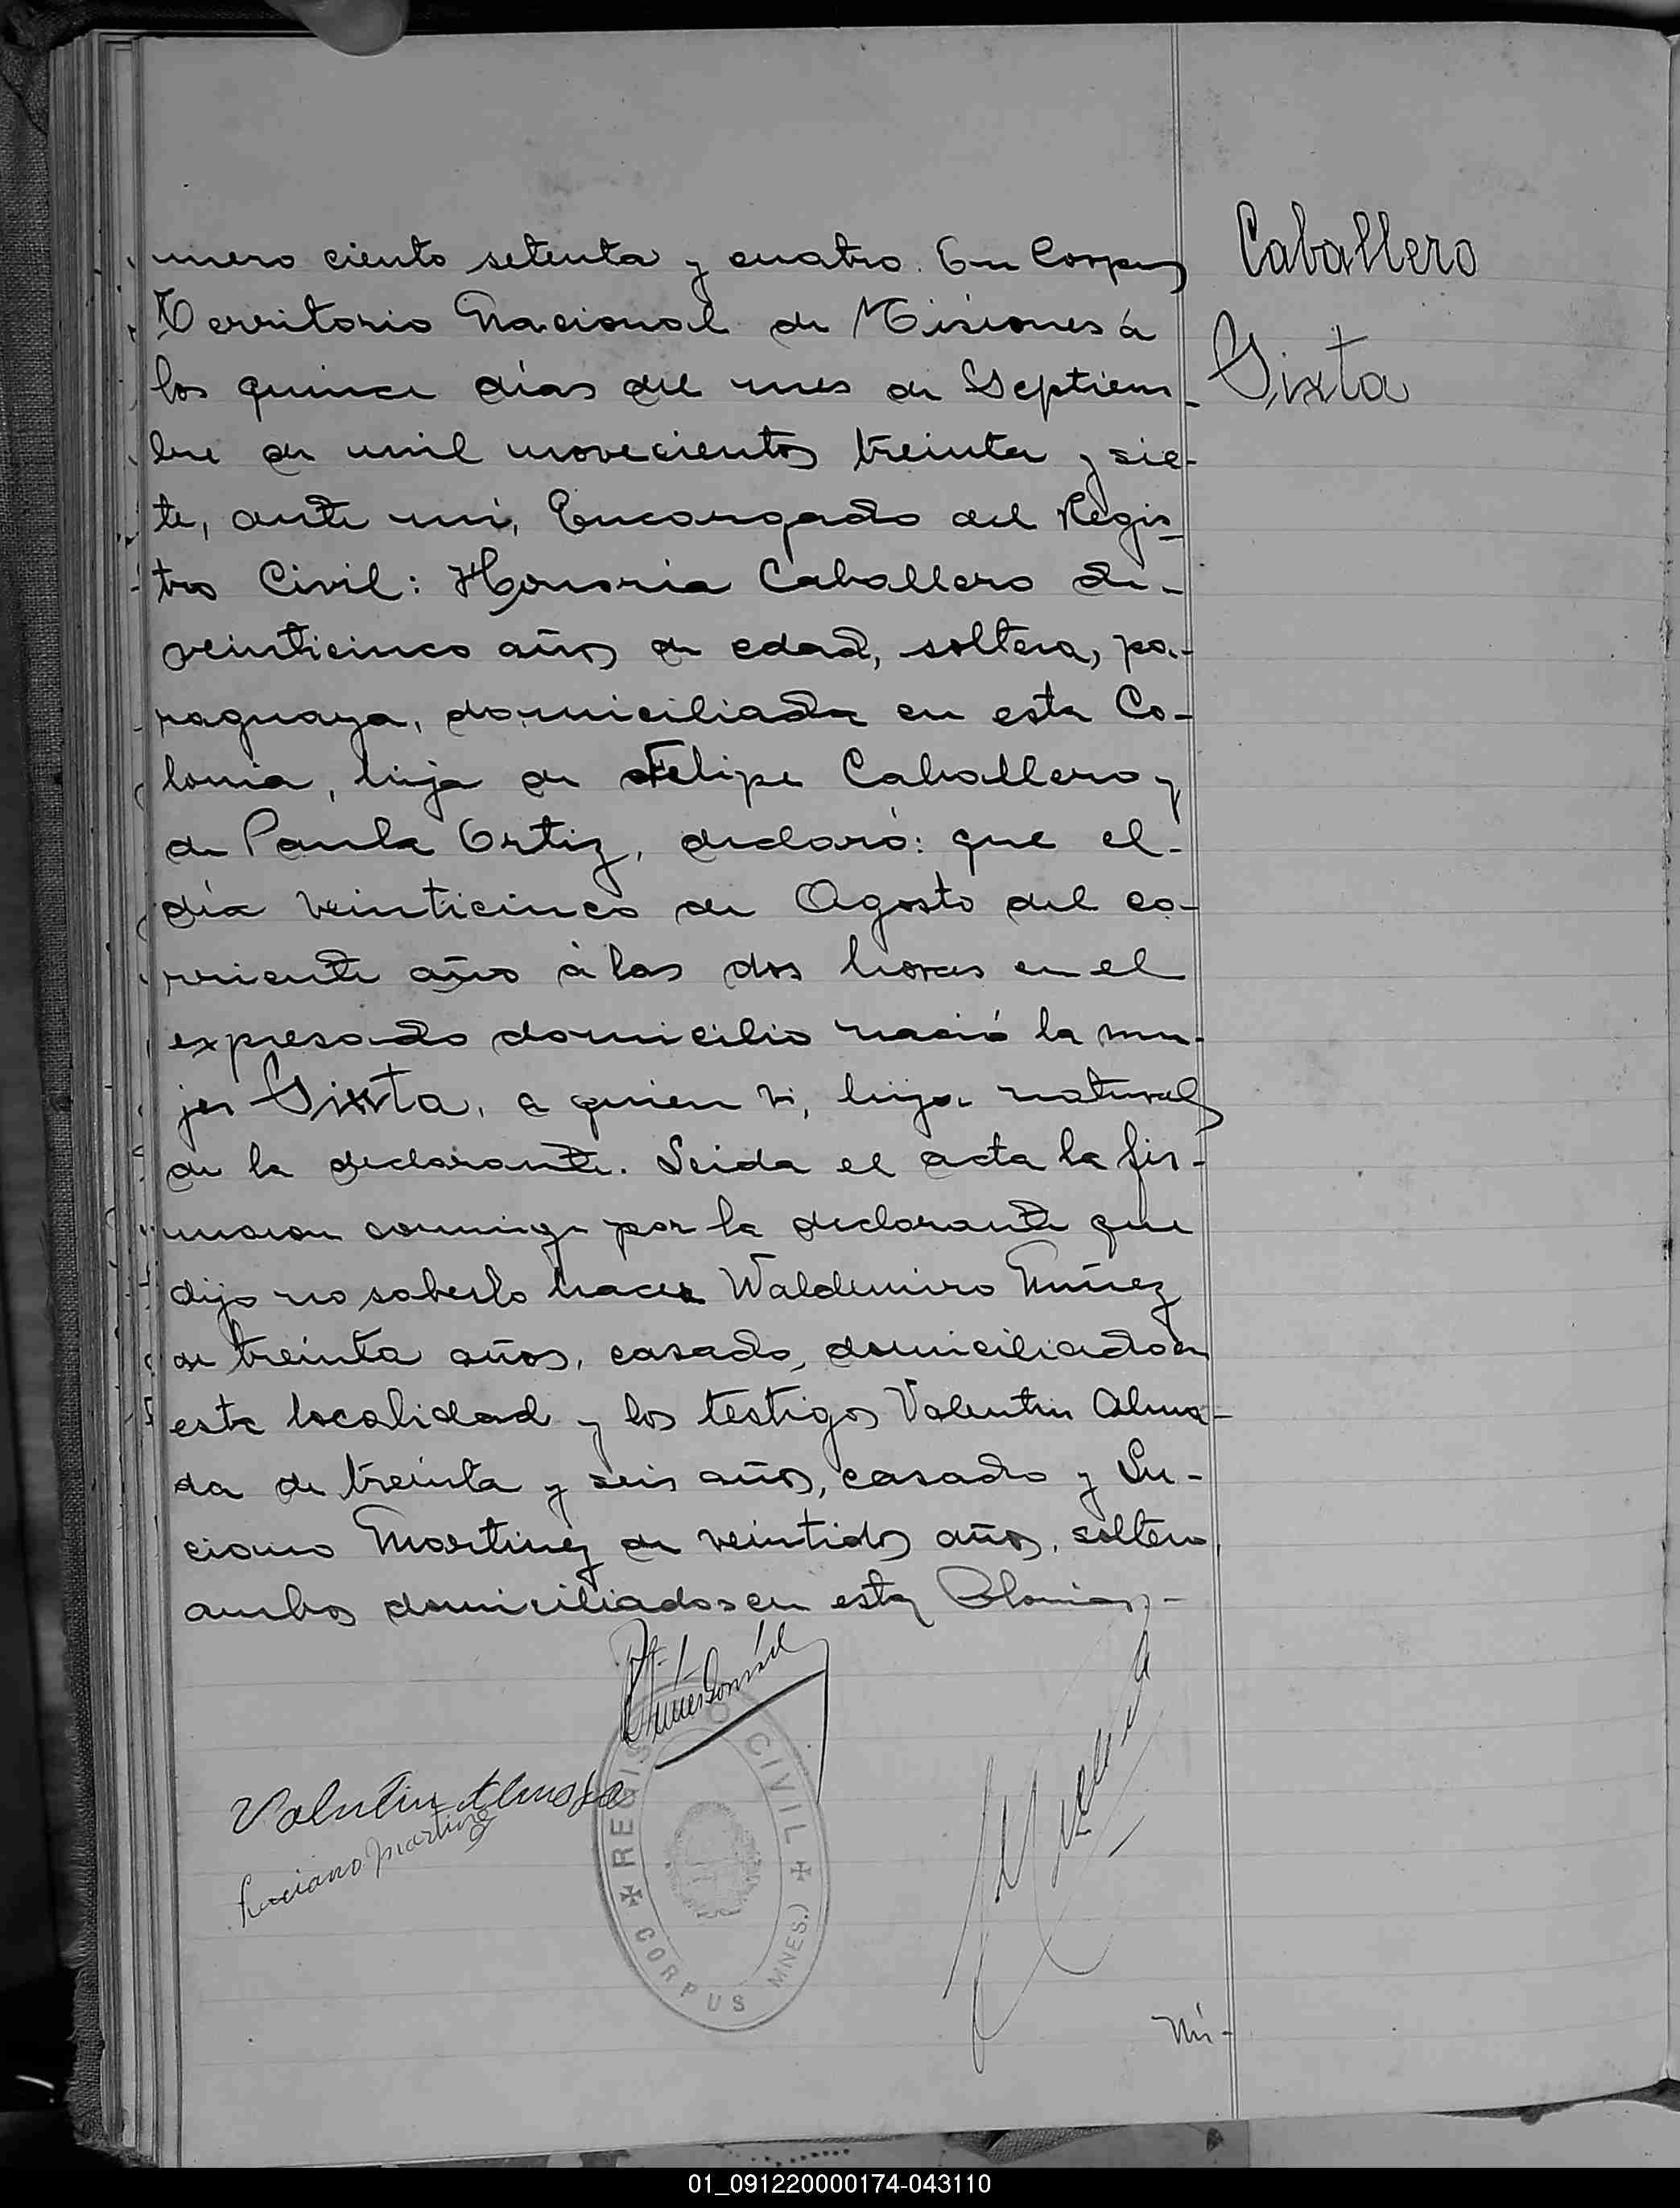 mero ciento setenta y cuatro. En Corpus
Territorio Nacional de Misiones á
los quince días del mes de Septiem-
bre de mil novecientos treinta y sie-
te, ante mí, Encargado del Regis-
tro Civil: Honoria Caballero de-
veinticinco años de edad, soltera, pa-
raguaya, domiciliada en esta Co-
lonia, hija de Felipe Caballero y
de Paula Ortiz, declaró: que el-
día veinticinco de Agosto del co-
rriente año á las dos horas en el
expresado domicilio nació la mu-
jer Sixta, a quien vi, hija natural
de la declarante. Leida el acta la fir-
maron conmigo por la declarante que
dijo no saberlo hacer Waldemiro Núñez
de treinta años, casado, domiciliado en
esta localidad y los testigos Valentin Alma-
da de treinta y seis años, casado y Lu-
ciano Martinez de veintidos años, soltero,
ambos domiciliados en esta Colonia.-
Caballero
Sixta
Valentin Almada
Luciano Martinez
REGISTRO CIVIL
CORPUS MNES.)
Nú-
01_091220000174-043110